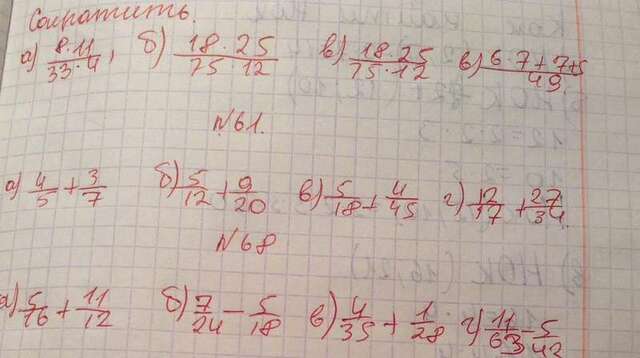 Сократить.
а) 8·11/33·4, б) 18·25/75·12 в) 18·25/75·12 в) 6·7+7+5/49
N61.
а) 4/5 + 3/7 б) 5/12 + 9/20 в) 5/18 + 4/45 г) 12/17 + 27/34
N68
а) 5/16 + 11/12 б) 7/24 - 5/18 в) 4/35 + 1/28 г) 11/63 - 5/42